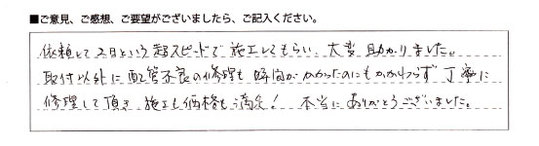 ■ご意見、ご感想、ご要望がございましたら、ご記入ください。
依頼して2日という超スピードで施工してもらい、大変助かりました。
取付以外に配管不良の修理も時間がかかったのにもかかわらず丁寧に
修理して頂き施工も価格も満足！ 本当にありがとうございました。